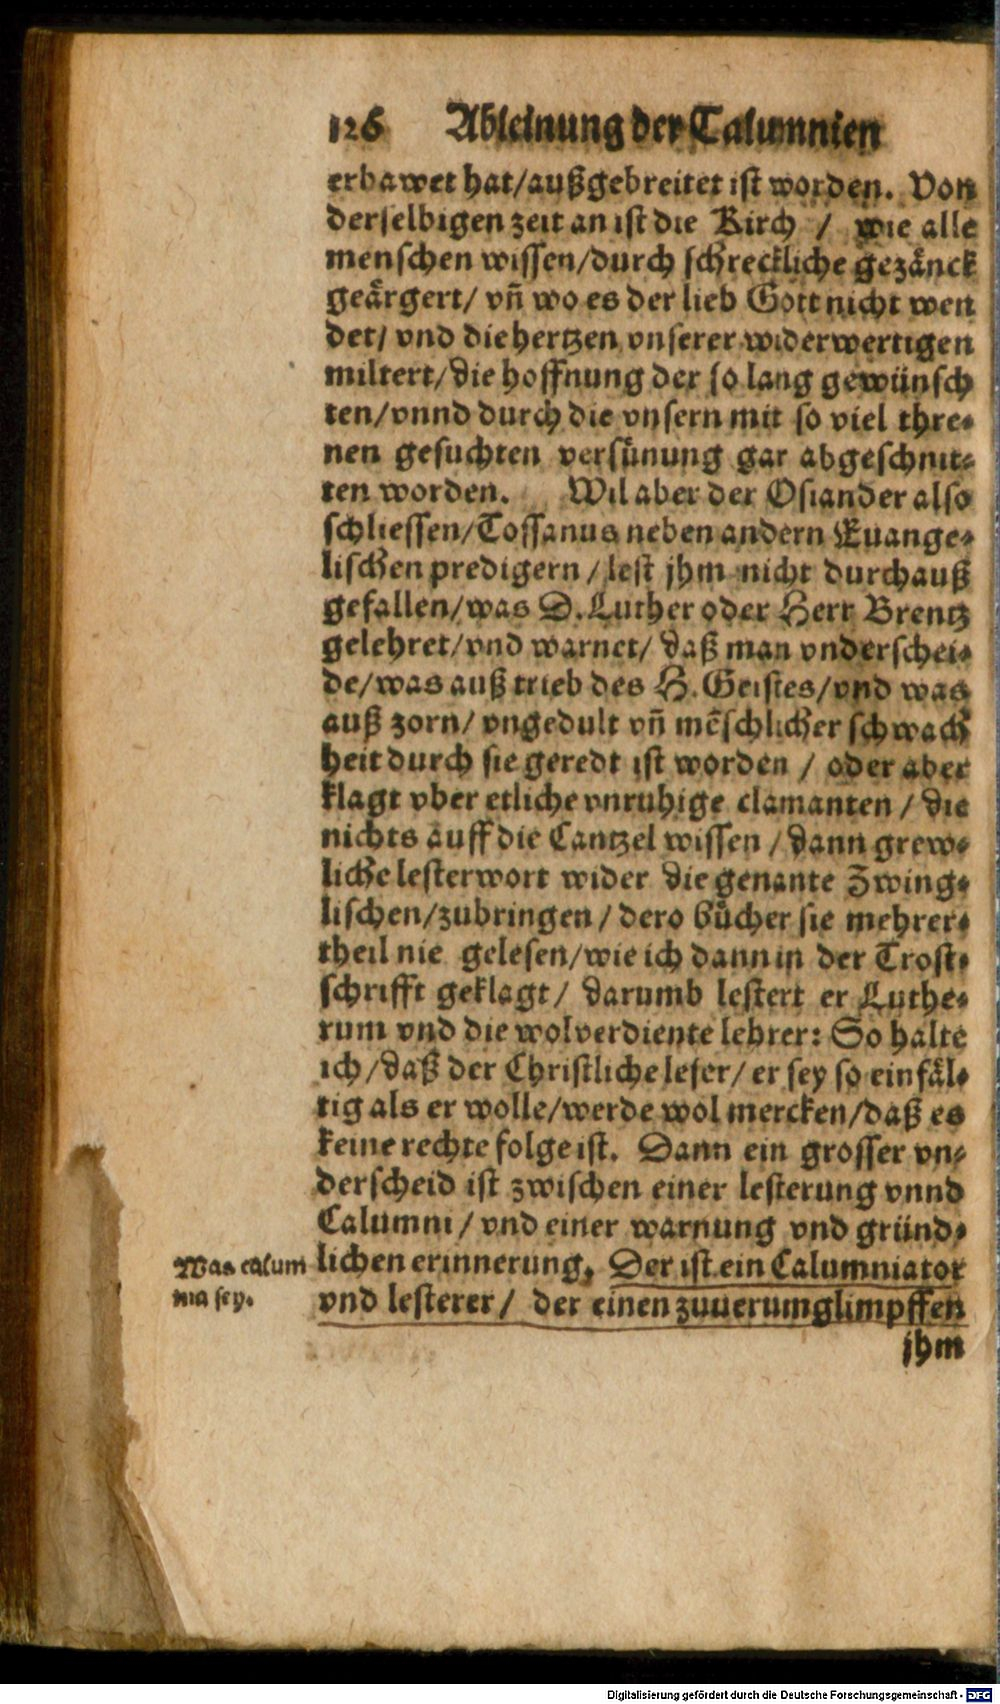 126 Ableinung der Calumnien
erbawet hat/außgebreitet ist worden. Von
derselbigen zeit an ist die Kirch / wie alle
menschen wissen/durch schreckliche gezänck
geärgert/ vñ wo es der lieb Gott nicht wen
det/ vnd die hertzen vnserer widerwertigen
miltert/die hoffnung der so lang gewünsch
ten/vnnd durch die vnsern mit so viel thre-
nen gesuchten versünung gar abgeschnit-
ten worden. Wil aber der Osiander also
schliessen/Tossanus neben andern Euange-
lischen predigern/lest jhm nicht durchauß
gefallen/was D. Luther oder Herr Brentz
gelehret/vnd warnet/ daß man vnderschei-
de/was auß trieb des H. Geistes/vnd was
auß zorn/ vngedult vñ mẽschlicher schwach
heit durch sie geredt ist worden / oder aber
klagt vber etliche vnruhige clamanten / die
nichts auff die Cantzel wissen / dann grew-
liche lesterwort wider die genante Zwing-
lischen/zubringen / dero bücher sie mehrer-
theil nie gelesen/wie ich dann in der Trost-
schrifft geklagt/ darumb lestert er Luthe-
rum vnd die wolverdiente lehrer: So halte
ich/daß der Christliche leser/ er sey so einfäl-
tig als er wolle/werde wol mercken/daß es
keine rechte folge ist. Dann ein grosser vn-
derscheid ist zwischen einer lesterung vnnd
Calumni/ vnd einer warnung vnd gründ-
lichen erinnerung. Der ist ein Calumniator
vnd lesterer/ der einen zuuerumglimpffen
jhm
Was calum
nia sey.
Digitalisierung gefördert durch die Deutsche Forschungsgemeinschaft - DFG